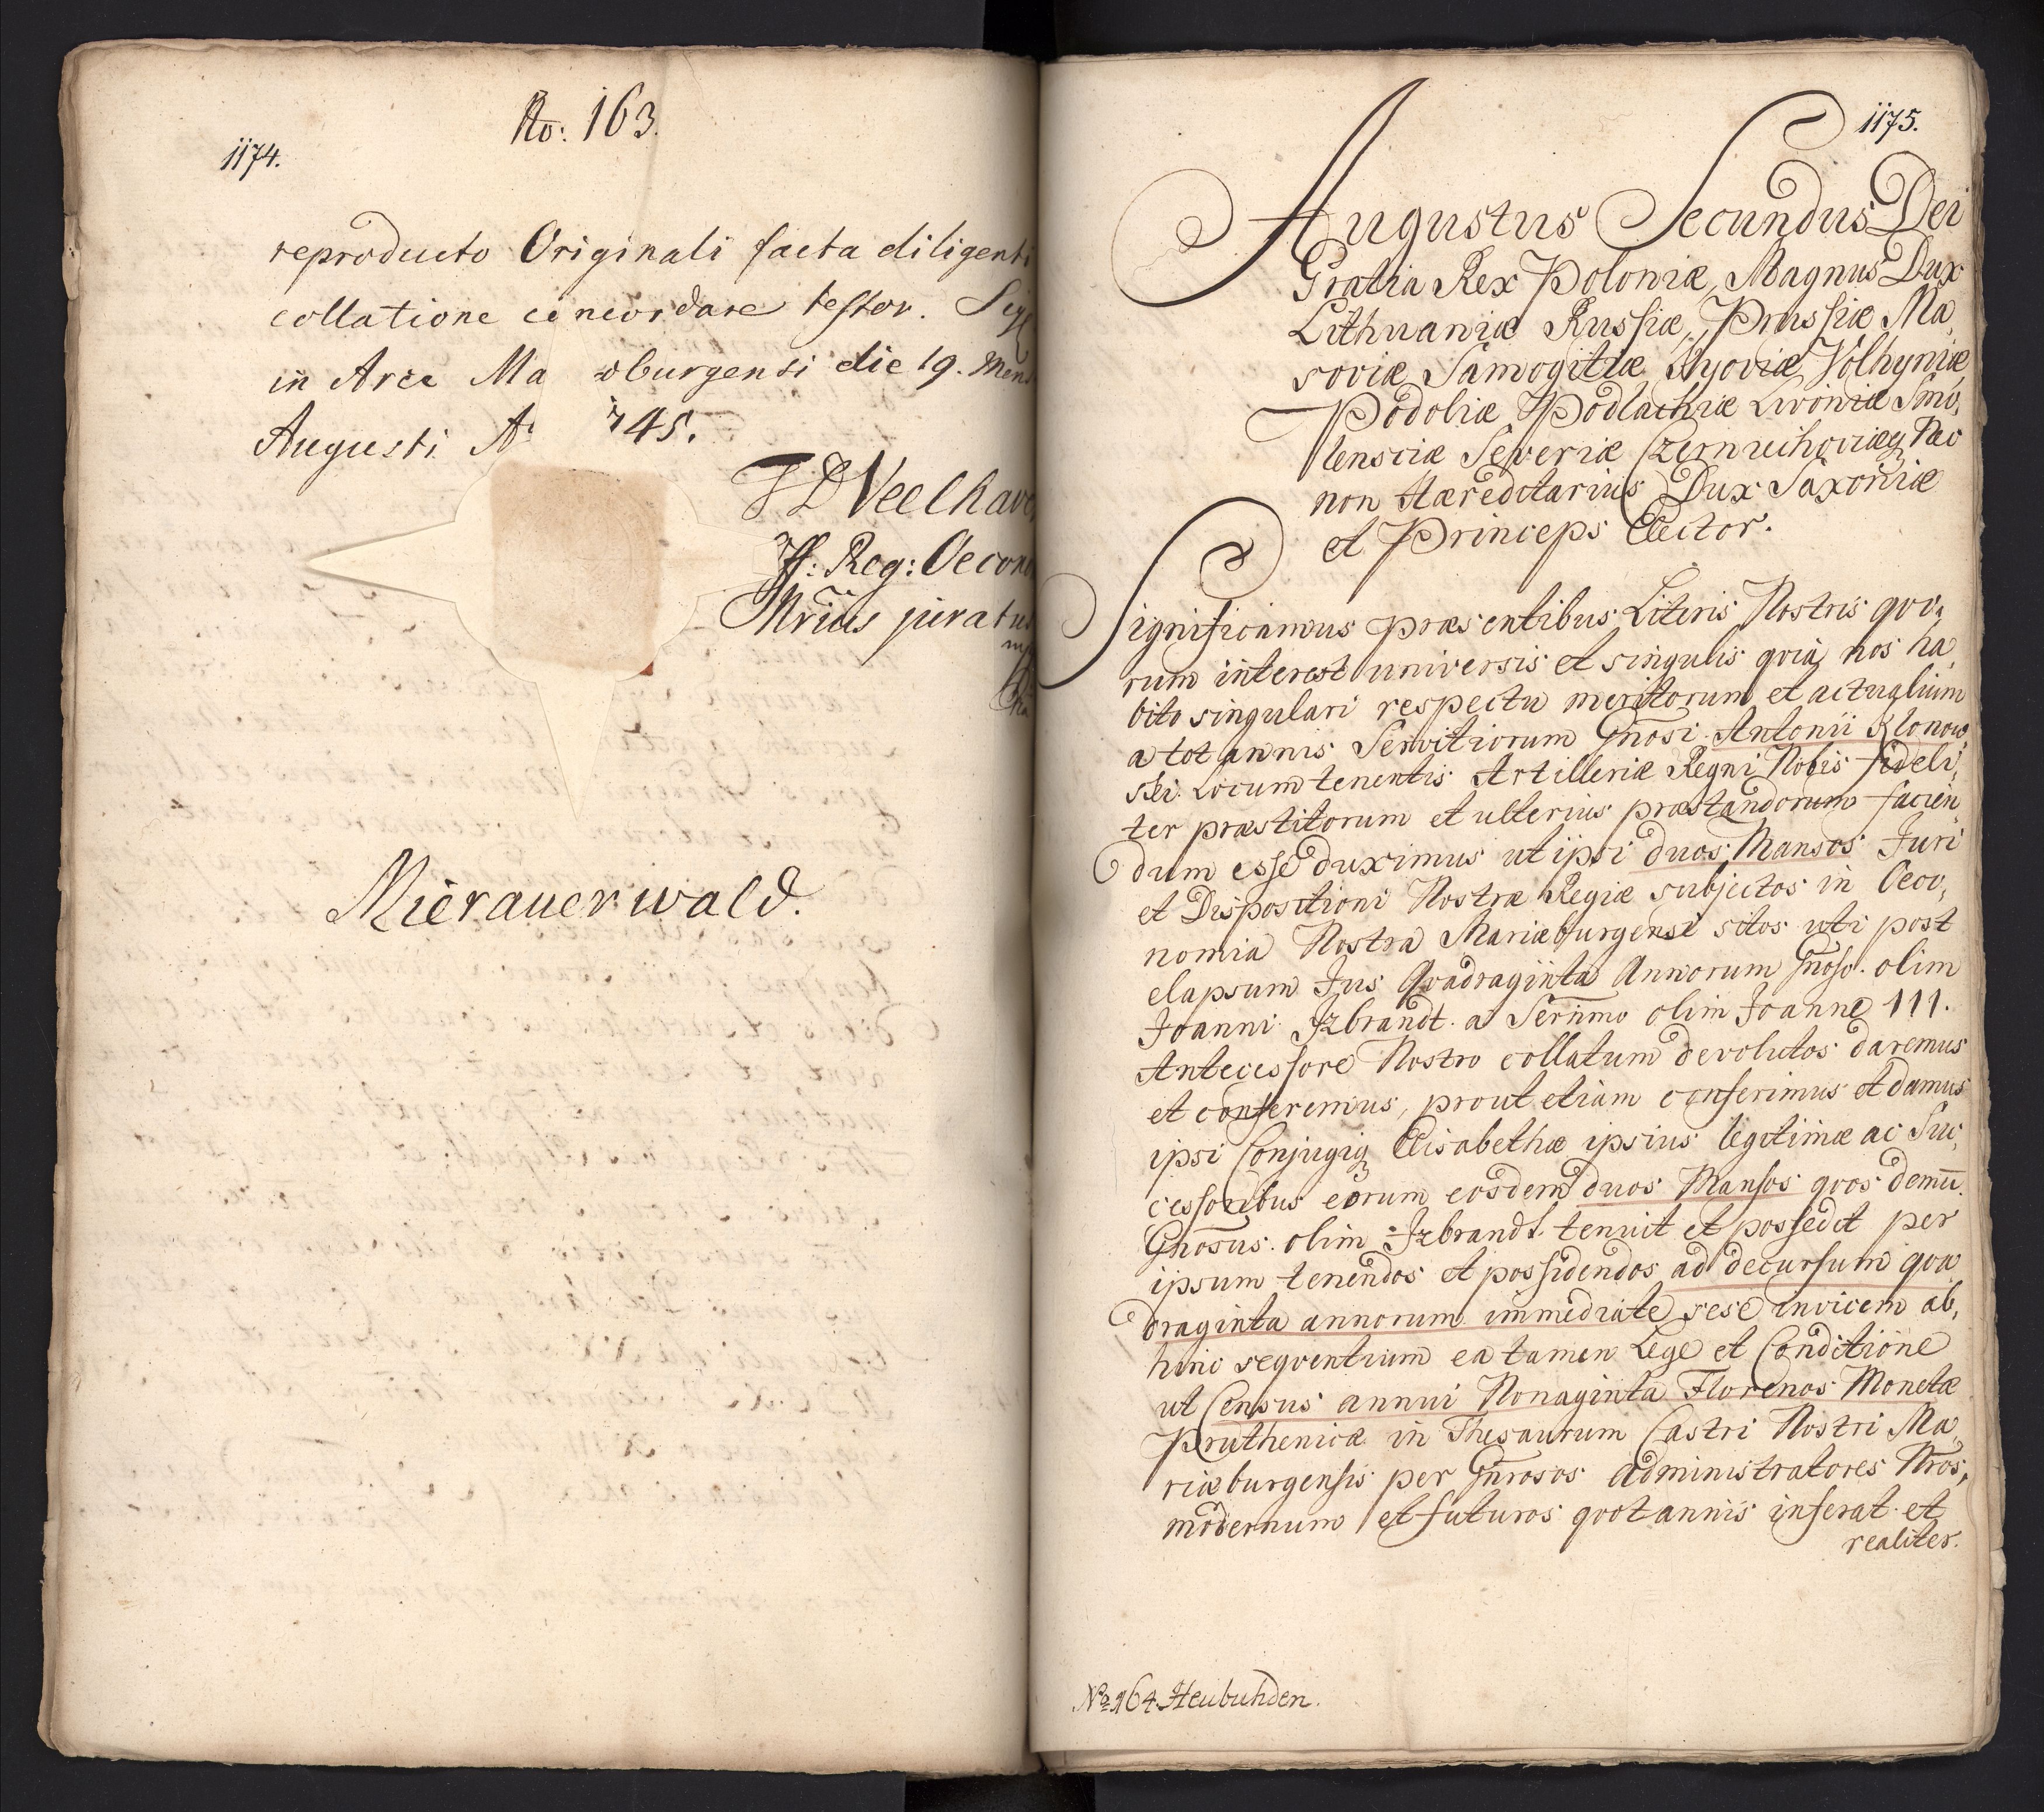 No: 163.
1174.
reproducto Originali facta diligenti
collatione concordare testor. Sig
in Arce Ma burgensi die 19. Mens
Augusti A 745.
Veelhave
Reg: Oecono
Mrius juratus
Mierauerwald.
1175.
Augustus Secundus Dei
Gratia Rex Poloniæ, Magnus Dux
Lithuaniæ Russiæ, Prussiæ Ma,
soviæ Samogitiæ Kyoviæ Volhyniæ
Podoliæ Podlachiæ Livoniæ Smo,
lensciæ Severiæ Czerniechoviæq Nec
non Hæreditarius Dux Saxoniæ
et Princeps Elector.
Significamus præsentibus Literis Nostris qvo,
rum interest universis et singulis qvia nos ha,
bito singulari respectu meritorum et actualium
a tot annis Servitiorum Gnosi Antonii Klonow,
ski Locum tenentis Artilleriæ Regni Nobis fideli,
ter præstitorum et ulterius præstandorum facien
dum esse duximus ut ipsi duos Mansos Juri
et Dispositioni Nostræ Regiæ subjectos in Oeco,
nomia Nostra Mariæburgensi sitos uti post
elapsum Jus Qvadraginta Annorum Gnoso olim
Joanni Izbrandt a Sernmo olim Joanne III.
Antecessore Nostro collatum devolutos daremus
et conferemus, prout etiam conferimus et damus
ipsi Conjugiq Elisabethæ ipsius legitimæ ac Suc,
cessoribus eorum eosdem duos Mansos qvos demū
Gnosus olim Izbrandt tenuit et possedit per
ipsum tenendos et possidendos ad decursum qva
draginta annorum immediate sese invicem ab,
hinc seqventium ea tamen Lege et Conditione
ut Census annui Nonaginta Florenos Monetæ
Pruthenicæ in Thesaurum Castri Nostri Ma,
riæburgensis per Gnrosos administratores Nros,
modernum et futuros qvotannis inferat et
realiter.
No 164 Heubuhden.